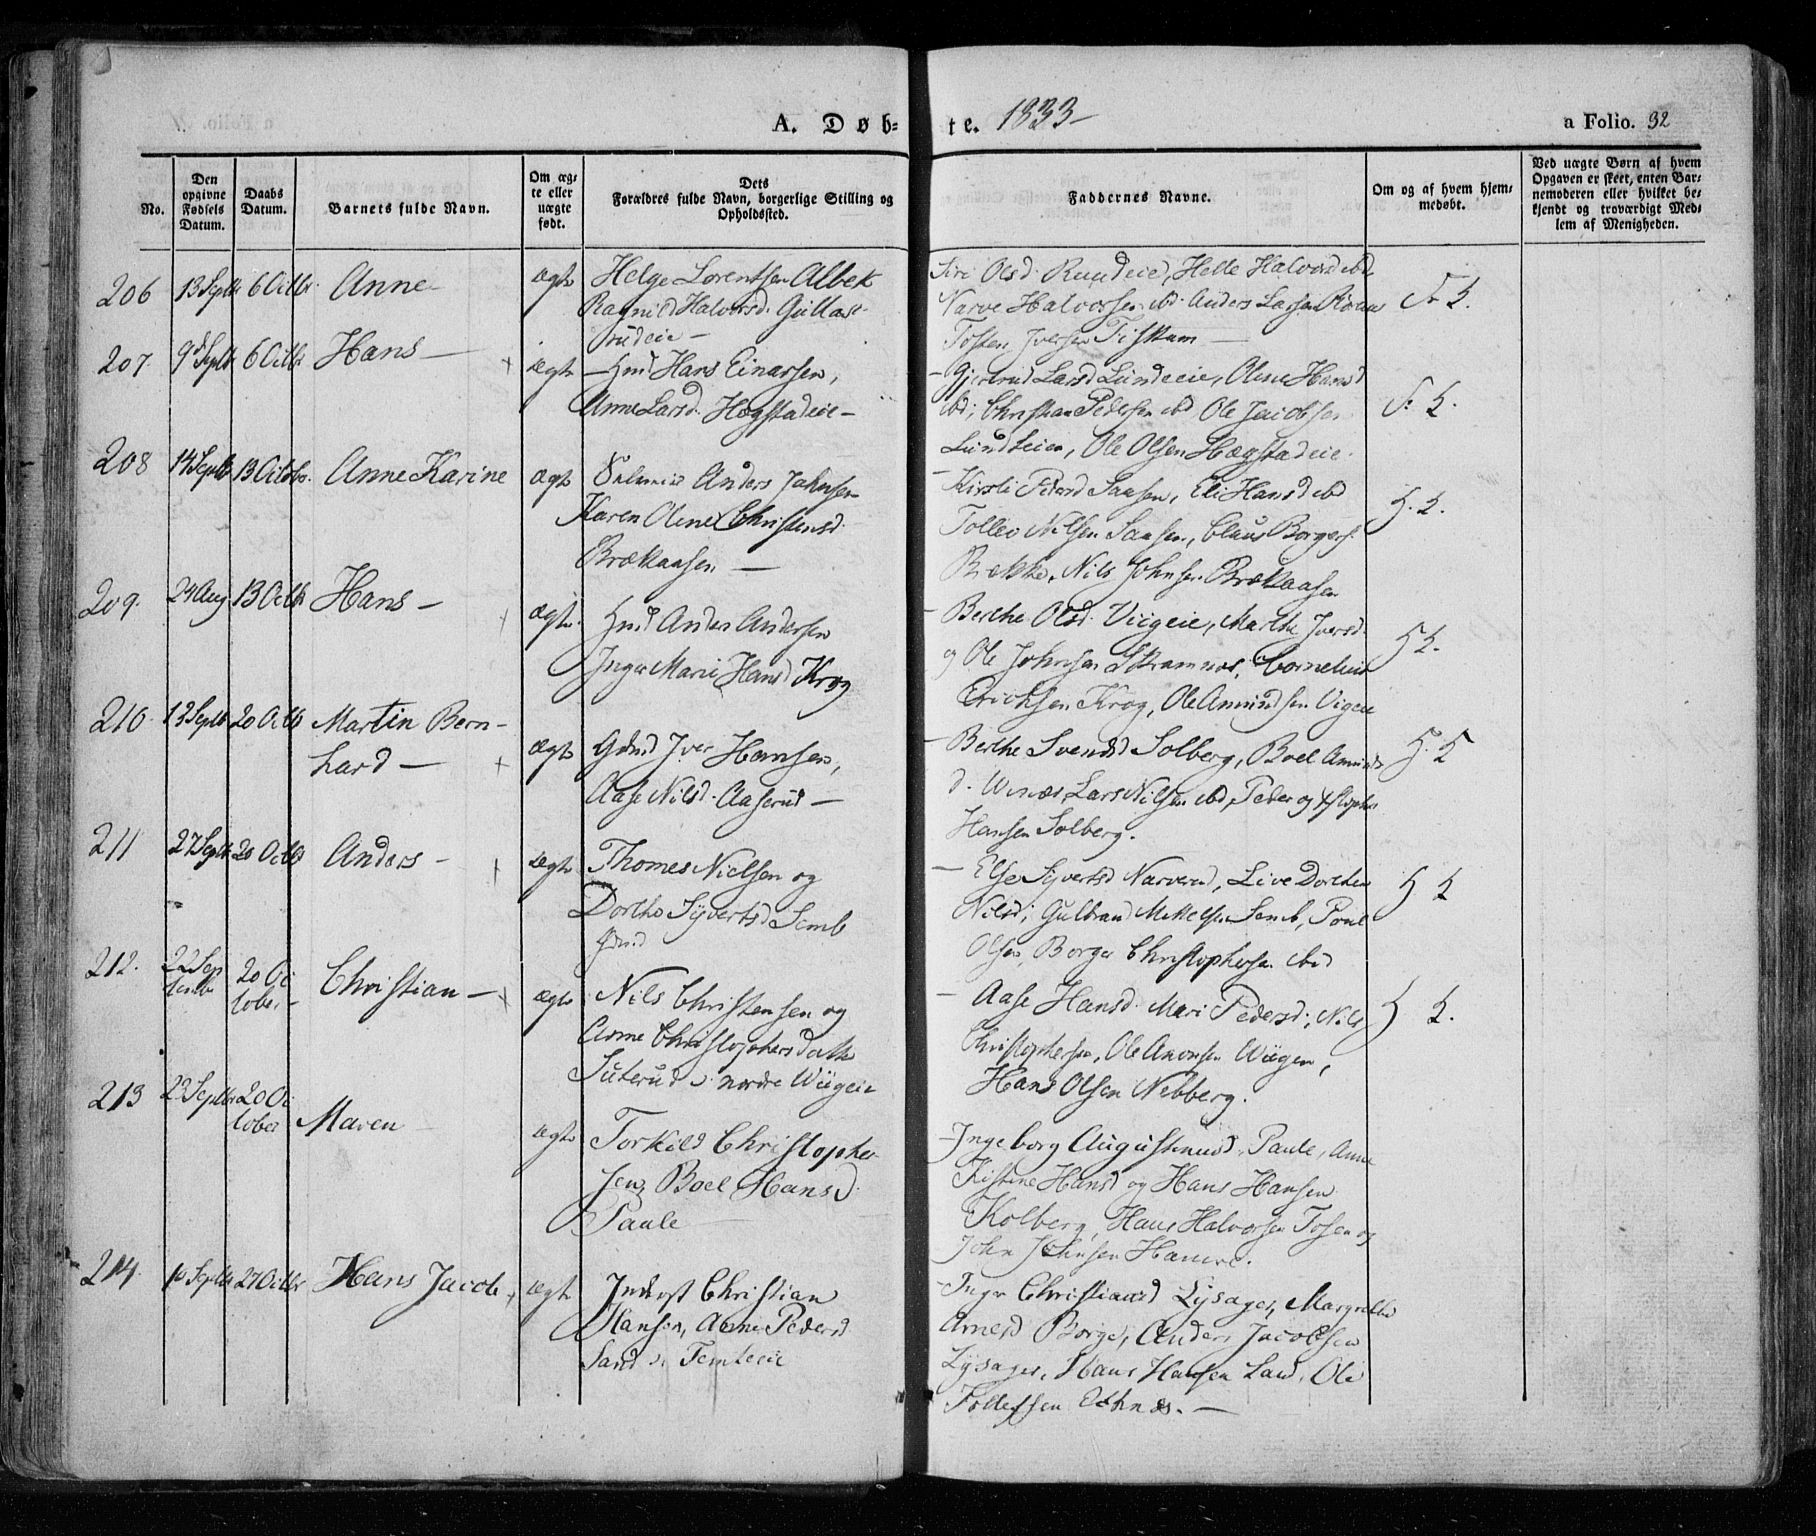 A. Døb-
te. 1833-
a Folio. 32
No.
Den opgivne Fødsels Datum.
Daabs Datum.
Barnets fulde Navn.
Om ægte eller uægte født.
Dets Forældres fulde Navn, borgerlige Stilling og Opholdssted.
Faddernes Navne.
Om og af hvem hjemmedøbt.
Ved uægte Børn af hvem Opgaven er skeet, enten Barnemoderen eller hvilket bekjendt og troværdigt Medlem af Menigheden.
206 13 Septbr 6 Octbr. Anne- ægte Helge Lorentsen Albek
Ragnild Halvorsd. Gullas-
rudeie-
Siri Olsd. Ruudeie, Helle Halvorsd ibd,
Narve Halvorsen ibd. Anders Larsen
Tosten Iversen Fiskum-
207. 9d Septb 6 Octbr Hans- ægte -Hmd Hans Einarsen,
Anne Larsd. Hægstadeie-
-Gjertrud Larsd Lundeeie, Olene Hansd
ibd; Christian Pedersen ibd Ole Jacobsen
Lundteien, Ole Olsen Hægstadeie.
208 14 Septbr 13 Octobr. Anne Karine ægte Anders Johnsen
Karen Olene Christensd.
Brækaasen-
-Kirsti Pedersd Saasen, Eli Hansd ibd
Tollev Nilsen Saasen, Claus Borgers.
Brække, Nils Johnsen Brækaasen
209. 24 Aug 13 Octb Hans- ægte. Hmd Anders Andersen
Inger Marie Hansd Krog
-Berthe Olsd. Viigeie, Marthe Iversd.
og Ole Johnsen Skramnes, Cornelius
Ericksen Krog, Ole Amundsen Vigeie
210. 13 Septb 20 Octb Martin Bern-
hard- ægte Gdmd Iver Hansen,
Aase Nilsd. Aaserud-
-Berthe Svendsd Solberg, Boel Amunds
d. Lars Nilsen ibd, Peder og
Hansen Solberg.
211 27 Septb. 20 Octb Anders- ægte Thomes Nielsen og
Dorthe Syvertsd Semb
Gdmd
-Else Syvertsd Narverud, Live Dorthea
Nilsd; Gulbrand Mikkelsen Semb, Poul
Olsen, Borger Christophersen ibid
212. 22 Sep
temb 20 Oc
tober- Christian- ægte Nils Christensen og
Anne Christophersdatte
Suterud v. nordre Wiigeie
-Aase Hansd. Mari Pedersd; Nils
Christophersen, Ole Wiigen,
Hans Olsen Nebberg.
213 23 Septbr 20 Oc
tober Maren ægte Torkild Christopher
sen, Boel Hansd.
Paule-
-Ingeborg Augustinusd. Paule, Anne
Kistine Hansd og Hans Hansen
Kolberg, Hans Halvorsen Fosen og
John Johnsen
214. 10 Septbr 27 Octbr Hans Jacob, ægte Inderst Christian
Hansen, Anne Pedersd
-Inger Christiansd Lysager, Margrethe
Arnesd Borge, Anders Jacobsen
Lysager, Hans Hansen Ole
Tollefsen